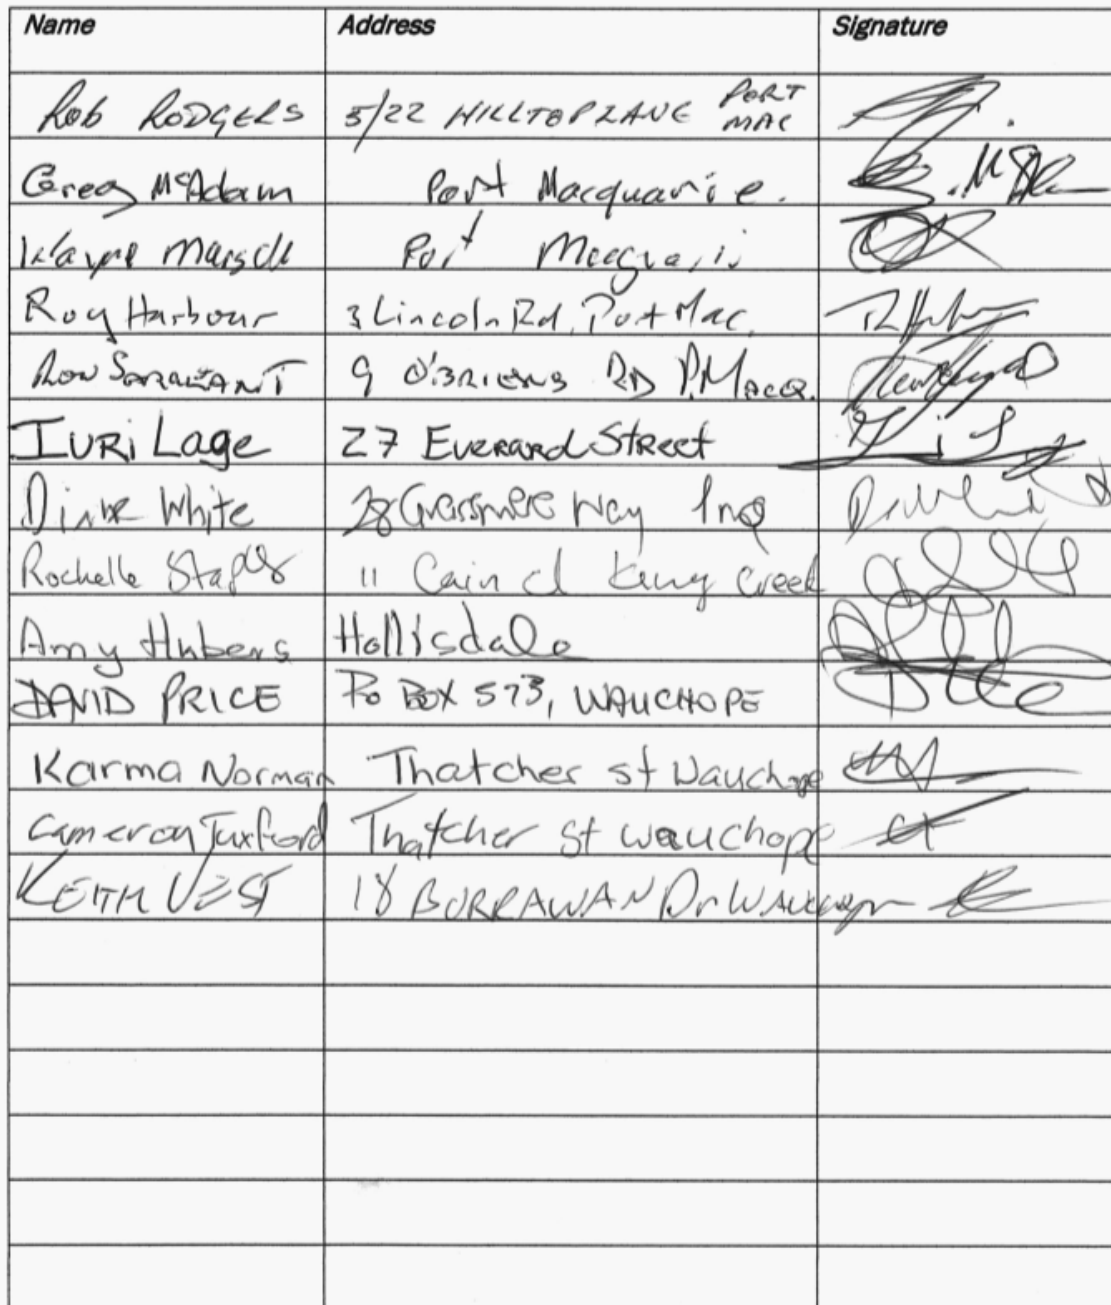 Name Address Signature
Rob RODGERS 5/22 HILLTOP LANE PORT MAC
Greg McAdam Port Macquarie.
Wayne Port
Roy Harbour 3 Lincoln Rd, Port Mac.
RON 9 O'BRIENS RD P.MACQ.
IURI Lage 27 Everard Street
White 28 Grassmere Way
Rochelle Staples 11 Cain cl King Creek
Amy Hubers Hollisdale
DAVID PRICE Po BOX 573, WAUCHOPE
Karma Norman Thatcher st Wauchope
Cameron Tuxford Thatcher st wauchope
KEITH 18 BURRAWAN Dr WAUCHOPE